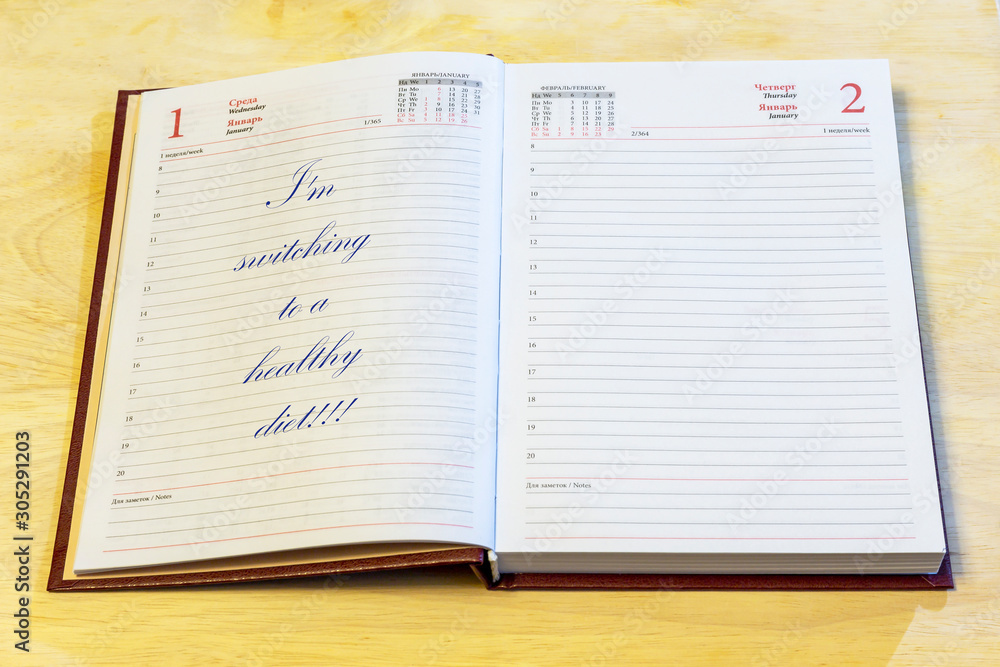 1
Среда
Wednesday
Январь
January
ЯНВАРЬ/JANUARY
Нд We 1 2 3 4 5
Пн Mo 6 13 20 27
Вт Tu 7 14 21 28
Ср We 1 8 15 22 29
Чт Th 2 9 16 23 30
Пт Fr 3 10 17 24 31
Сб Sa 4 11 18 25
Вс Su 5 12 19 26
1/365
1 неделя/week
8
9
I'm
10
11
switching
12
13
to a
14
15
healthy
16
17
diet!!!
18
19
20
Для заметок / Notes
ФЕВРАЛЬ/FEBRUARY
Нд We 5 6 7 8 9
Пн Mo 3 10 17 24
Вт Tu 4 11 18 25
Ср We 5 12 19 26
Чт Th 6 13 20 27
Пт Fr 7 14 21 28
Сб Sa 1 8 15 22 29
Вс Su 2 9 16 23
2/364
Четверг
Thursday
Январь
January
2
1 неделя/week
8
9
10
11
12
13
14
15
16
17
18
19
20
Для заметок / Notes
Adobe Stock | #305291203